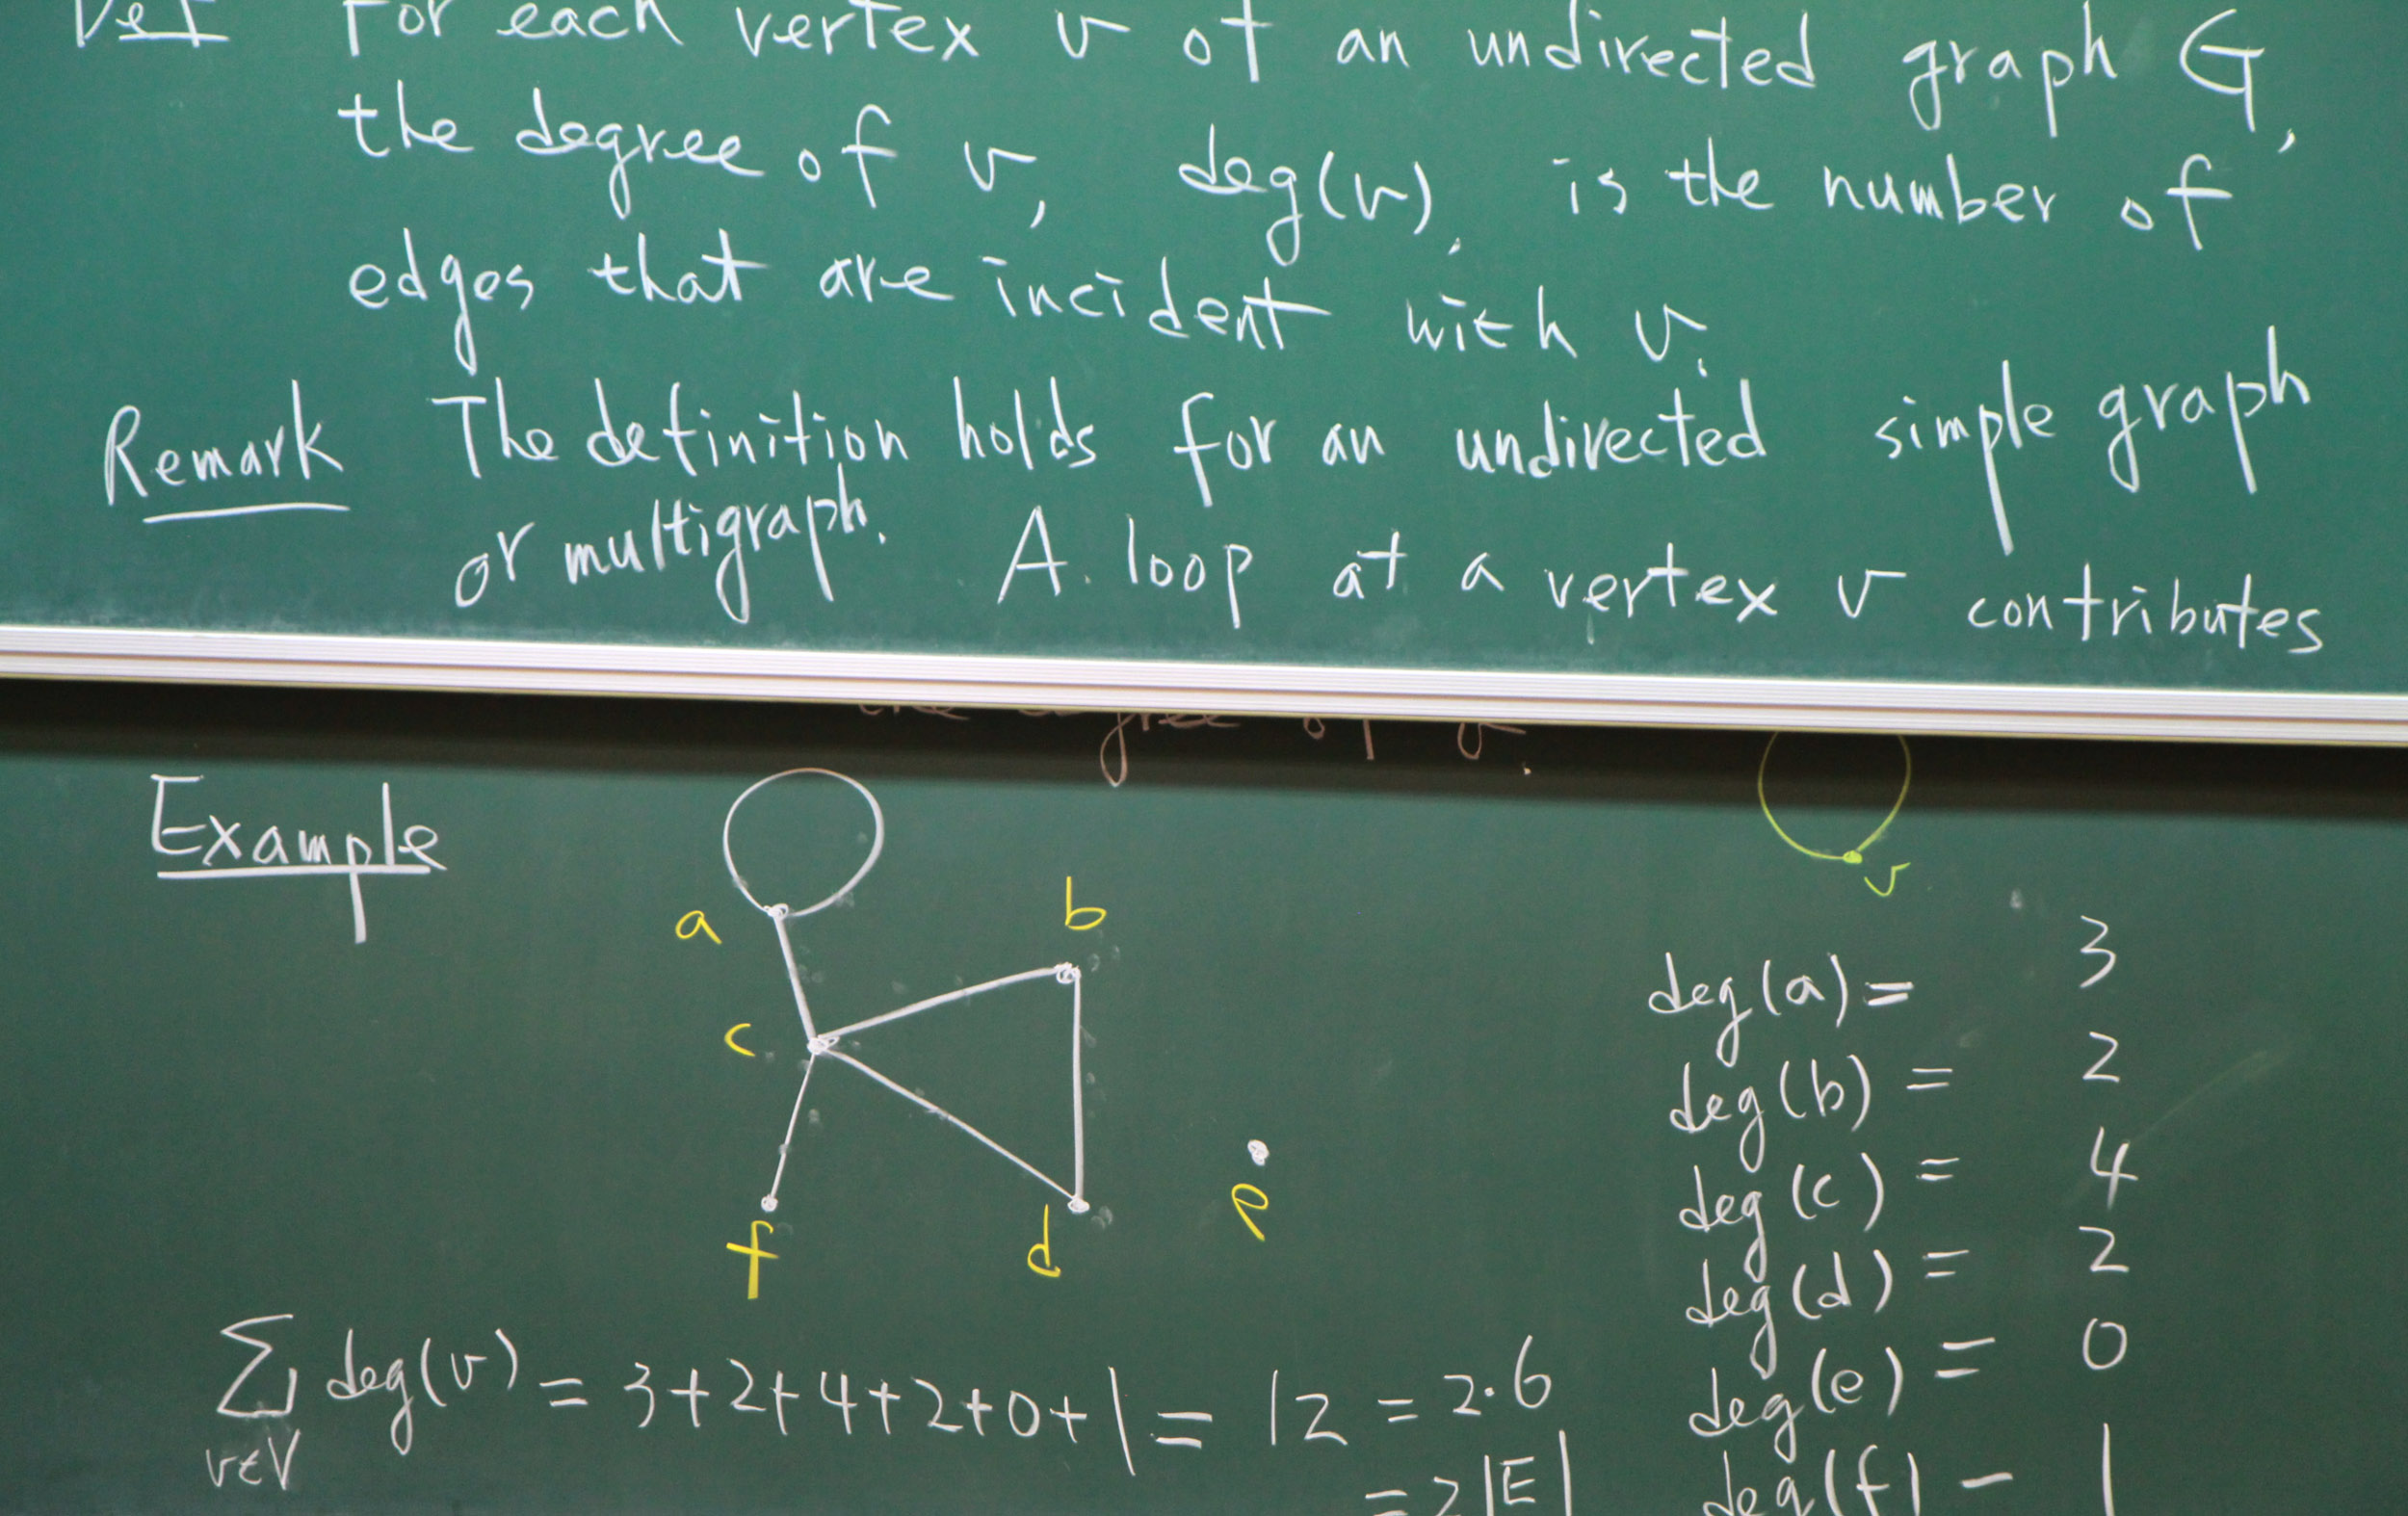 Def For each vertex v of an undirected graph G,
the degree of v, deg(v), is the number of
edges that are incident with v.
Remark The definition holds for an undirected simple graph
or multigraph. A loop at a vertex v contributes
the degree of v.
v
Example
a
b
c
f
d
e
deg(a) = 3
deg(b) = 2
deg(c) = 4
deg(d) = 2
deg(e) = 0
deg(f) = 1
∑ deg(v) = 3+2+4+2+0+1 = 12 = 2·6
v∈V
= 2|E|